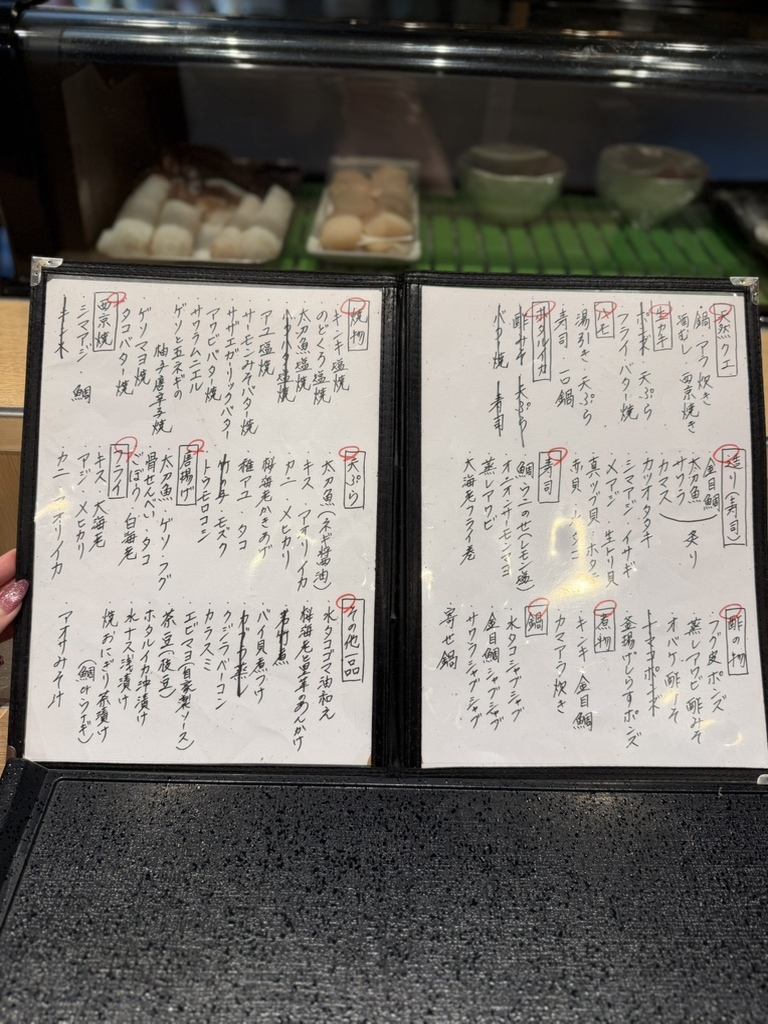 天然クエ
鍋 アラ炊き
酒むし 西京焼き
生カキ
ポン酢 天ぷら
フライ バター焼
ハモ
湯引き・天ぷら
寿司 一口鍋
ホタルイカ
酢みそ 天ぷら
バタ焼 寿司
造り(寿司)
金目鯛
太刀魚
サワラ
カマス
炙り
カツオタタキ
シマアジ・イサギ
メアジ 生トリ貝
真ツブ貝・ホタテ
赤貝
寿司
鯛うにのせ(レモン塩)
オニオンサーモンマヨ
蒸しアワビ
大海老フライ巻
酢の物
フグ皮ポンズ
蒸しアワビ 酢みそ
オバケ 酢みそ
釜揚げしらすポンズ
煮物
キンキ 金目鯛
カマアラ炊き
鍋
水タコシャブシャブ
金目鯛シャブシャブ
サワラシャブシャブ
寄せ鍋
焼物
キンキ塩焼
のどくろ塩焼
太刀魚塩焼
アユ塩焼
サーモンみそバター焼
サザエガーリックバター
アワビバター焼
サワラムニエル
ゲソと玉ネギの
柚子唐辛子焼
ゲソマヨ焼
タコバター焼
西京焼
シマアジ・鯛
キンキ
天ぷら
太刀魚(ネギ醤油)
キス アオリイカ
カニ メヒカリ
桜海老かきあげ
稚アユ タコ
竹の子 モズク
トウモロコシ
唐揚げ
太刀魚・ゲソ・フグ
骨せんべい・タコ
ごぼう 白海老
フライ
キス 大海老
アジ メヒカリ
カニ アオリイカ
その他一品
水タコゴマ油和え
桜海老と里芋のあんかけ
若竹煮
バイ貝煮つけ
クジラベーコン
カラスミ
エビマヨ(自家製ソース)
茶豆(枝豆)
ホタルイカ沖漬け
水ナス浅漬け
焼おにぎり茶漬け
アオサみそ汁